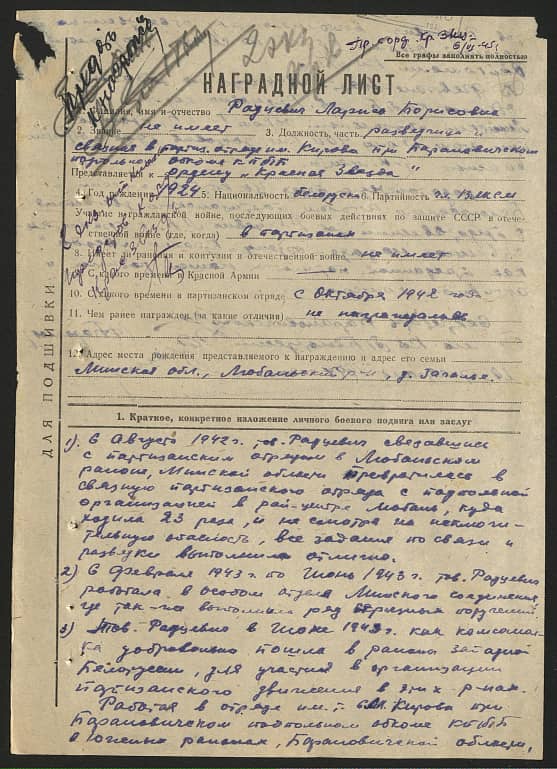 Пр. сорд. Хр.
Все графы заполнять полностью
НАГРАДНОЙ ЛИСТ
1. Фамилия, имя и отчество Радцевич Лариса Борисовна
2. Звание не имеет 3. Должность, часть разведчица
связная в партиз. отряде им. Кирова при Барановичском
подпольном обкоме КП(б)Б
Представляется к ордену „Красная Звезда"
4. Год рождения 1924 5. Национальность белоруска 6. Партийность ВЛКСМ
7. Участие в гражданской войне, последующих боевых действиях по защите СССР и отече-
ственной войне (где, когда) в партизанах
8. Имеет ли ранения и контузии в отечественной войне не имеет
9. С какого времени в Красной Армии
10. С какого времени в партизанском отряде с октября 1942 года
11. Чем ранее награжден (за какие отличия) не награждалась
12. Адрес места рождения представляемого к награждению и адрес его семьи
Минская обл., Любаньский р-н, д.
ДЛЯ ПОДШИВКИ
1. Краткое, конкретное изложение личного боевого подвига или заслуг
1). В Августе 1942 г. тов. Радцевич связавшись
с партизанским отрядом в Любаньском
районе, Минской области превратилась в
связную партизанского отряда с подпольной
организацией в рай-центре Любань, куда
ходила 23 раза, и не смотря на исключи-
тельную опасность, все задания по связи и
разведки выполнила отлично.
2) С Февраля 1943 г. по Июнь 1943 г. тов. Радцевич
работала в особом отделе Минского соединения,
где так-же выполнила ряд серьезных поручений.
3) Тов. Радцевич в Июне 1943 г. как комсомол-
ка добровольно пошла в районы западной
Белоруссии, для участия в организации
партизанского движения в этих р-нах.
Работая в отряде им. Кирова при
Барановичском подпольном обкоме КП(б)Б
в Южных районах, Барановичской области,